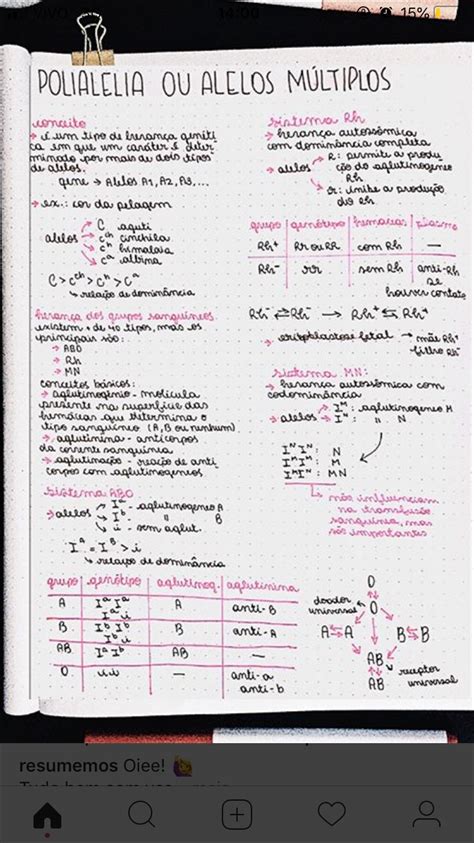 VIVO 14:00 15%
POLIALELIA OU ALELOS MÚLTIPLOS
conceito
→ é um tipo de herança genéti
ca em que um caráter é deter
minado por mais de dois tipos
de alelos.
gene → Alelos A1, A2, A3, ...
→ ex.: cor da pelagem
alelos
C aguti
cᶜʰ chinchila
cʰ himalaia
cᵃ albina
C > cᶜʰ > cʰ > cᵃ
↳ relação de dominância
herança dos grupos sanguíneos
existem + de 40 tipos, mas os
principais são:
→ ABO
→ Rh
→ MN
conceitos básicos:
→ aglutinogênio - molécula
presente na superfície das
hemácias que determina o
tipo sanguíneo (A, B ou nenhum)
→ aglutinina - anticorpos
da corrente sanguínea
→ aglutinação - reação de anti
corpos com aglutinogenos
sistema ABO
→ alelos
Iᵃ - aglutinogeneo A
Iᵇ - " B
i - sem aglut.
Iᴬ = Iᴮ > i
↳ relação de dominância
grupo genótipo aglutinog. aglutinina
A Iᵃ Iᵃ Iᵃ i A anti-B
B Iᵇ Iᵇ Iᵇ i B anti-A
AB Iᵃ Iᵇ AB —
O ii — anti-a anti-b
sistema Rh
→ herança autossômica
com dominância completa
→ alelos
R: permite a produ
ção do aglutinogeneo
Rh
r: inibe a produção
do Rh
grupo genótipo hemácias plasma
Rh⁺ RR ou RR com Rh —
Rh⁻ rr sem Rh anti-Rh
se
houver contato
Rh⁻ ⇄ Rh⁻ → Rh⁺ ⇆ Rh⁺
→ eritoblastose fetal → mãe Rh⁻
filho Rh⁺
sistema MN:
→ herança autossômica com
codominância
→ alelos
Iᴹ: aglutinogeneo M
Iᴺ: " N
Iᴺ Iᴺ: N
Iᴹ Iᴹ: M
Iᴹ Iᴺ: MN
↳ não influenciam
na transfusão
sanguínea, mas
são importantes
O
doador
universal
O
A ⇆ A B ⇆ B
AB
AB
receptor
universal
resumemos Oiee! 🙋